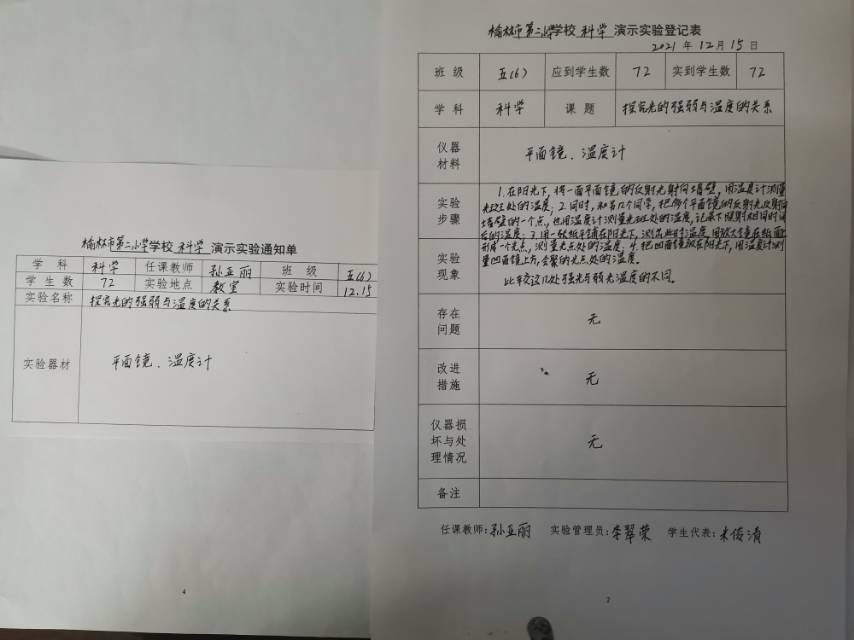 榆林市第二小学学校 科学 演示实验通知单
学 科 科学 任课教师 孙亚丽 班 级 五(6)
学 生 数 72 实验地点 教室 实验时间 12.15
实验名称 探究光的强弱与温度的关系
实验器材 平面镜、温度计
4
榆林市第二小学学校 科学 演示实验登记表
2021 年 12 月 15 日
班 级 五(6) 应到学生数 72 实到学生数 72
学 科 科学 课 题 探究光的强弱与温度的关系
仪器
材料
平面镜、温度计
实验
步骤
1.在阳光下,将一面平面镜的反射光射向墙壁,用温度计测量
光斑处的温度;2.同时,和另几个同学,把几个平面镜的反射光反射向
墙壁的一个点,也用温度计测量光斑处的温度,记录下照射相同时间
后的温度;3.用一张纸平铺在阳光下,测出此时温度,用放大镜在纸面上
实验
现象
形成一个光点,测量光点处的温度;4.把凹面镜放在阳光下,用温度计测
量凹面镜上方,会聚的光点处的温度。
比较这几处强光与弱光温度的不同。
存在
问题
无
改进
措施
无
仪器损
坏与处
理情况
无
备注
任课教师:孙亚丽 实验管理员:李翠荣 学生代表:米俊清